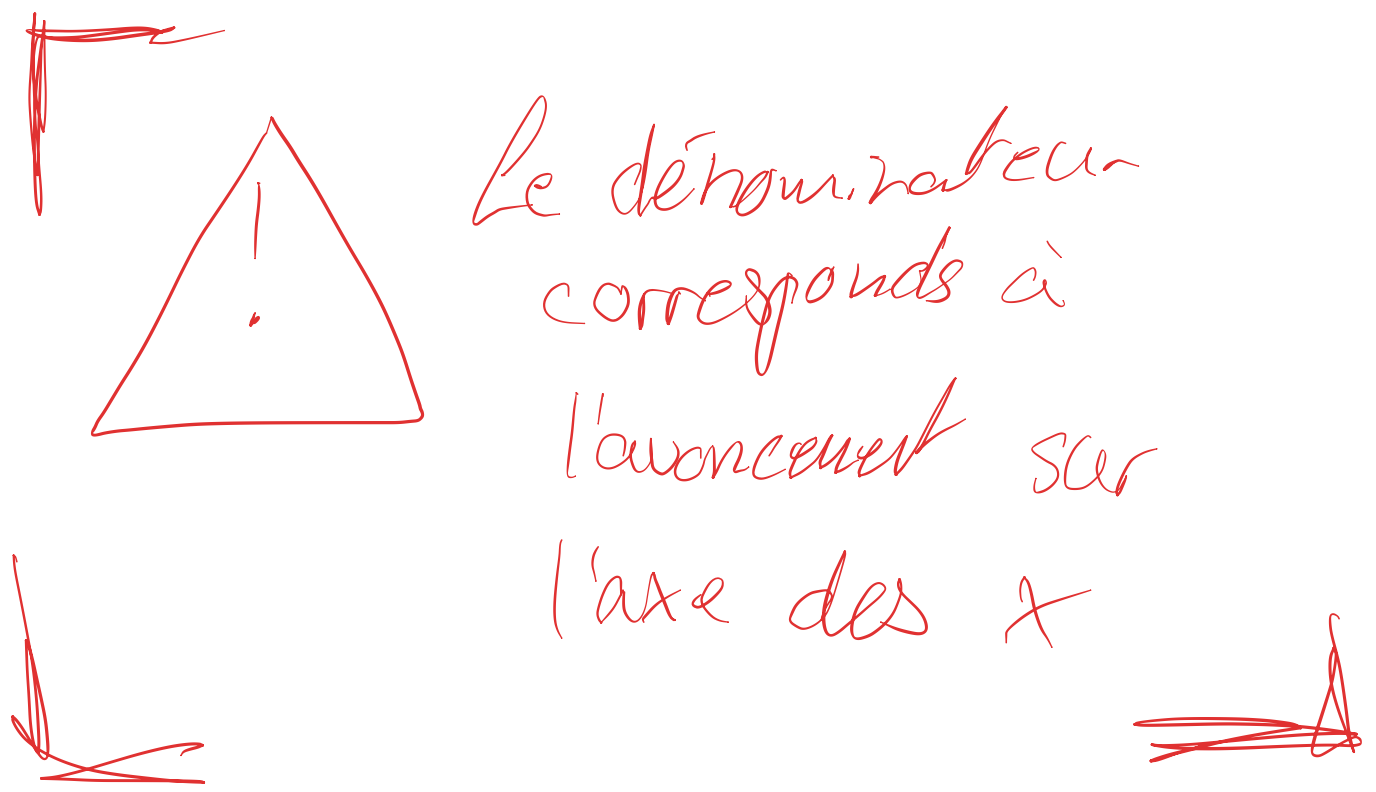 !
Le dénominateur
corresponds à
l'avancement sur
l'axe des x